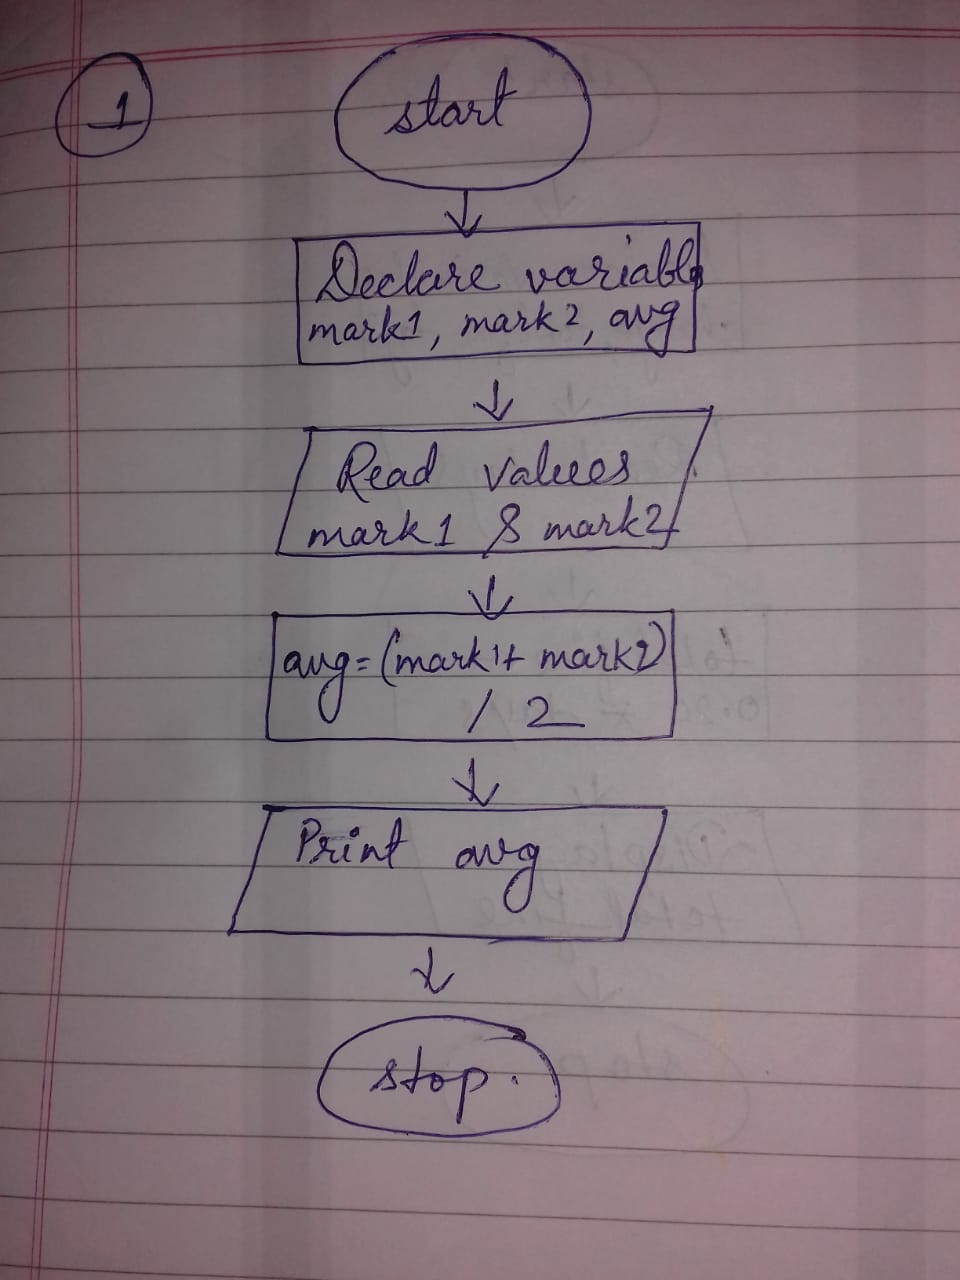 1
start
Declare variables
mark1, mark2, avg
Read values
mark1 & mark2
avg=(mark1+ mark2)
/ 2
Print avg
stop.